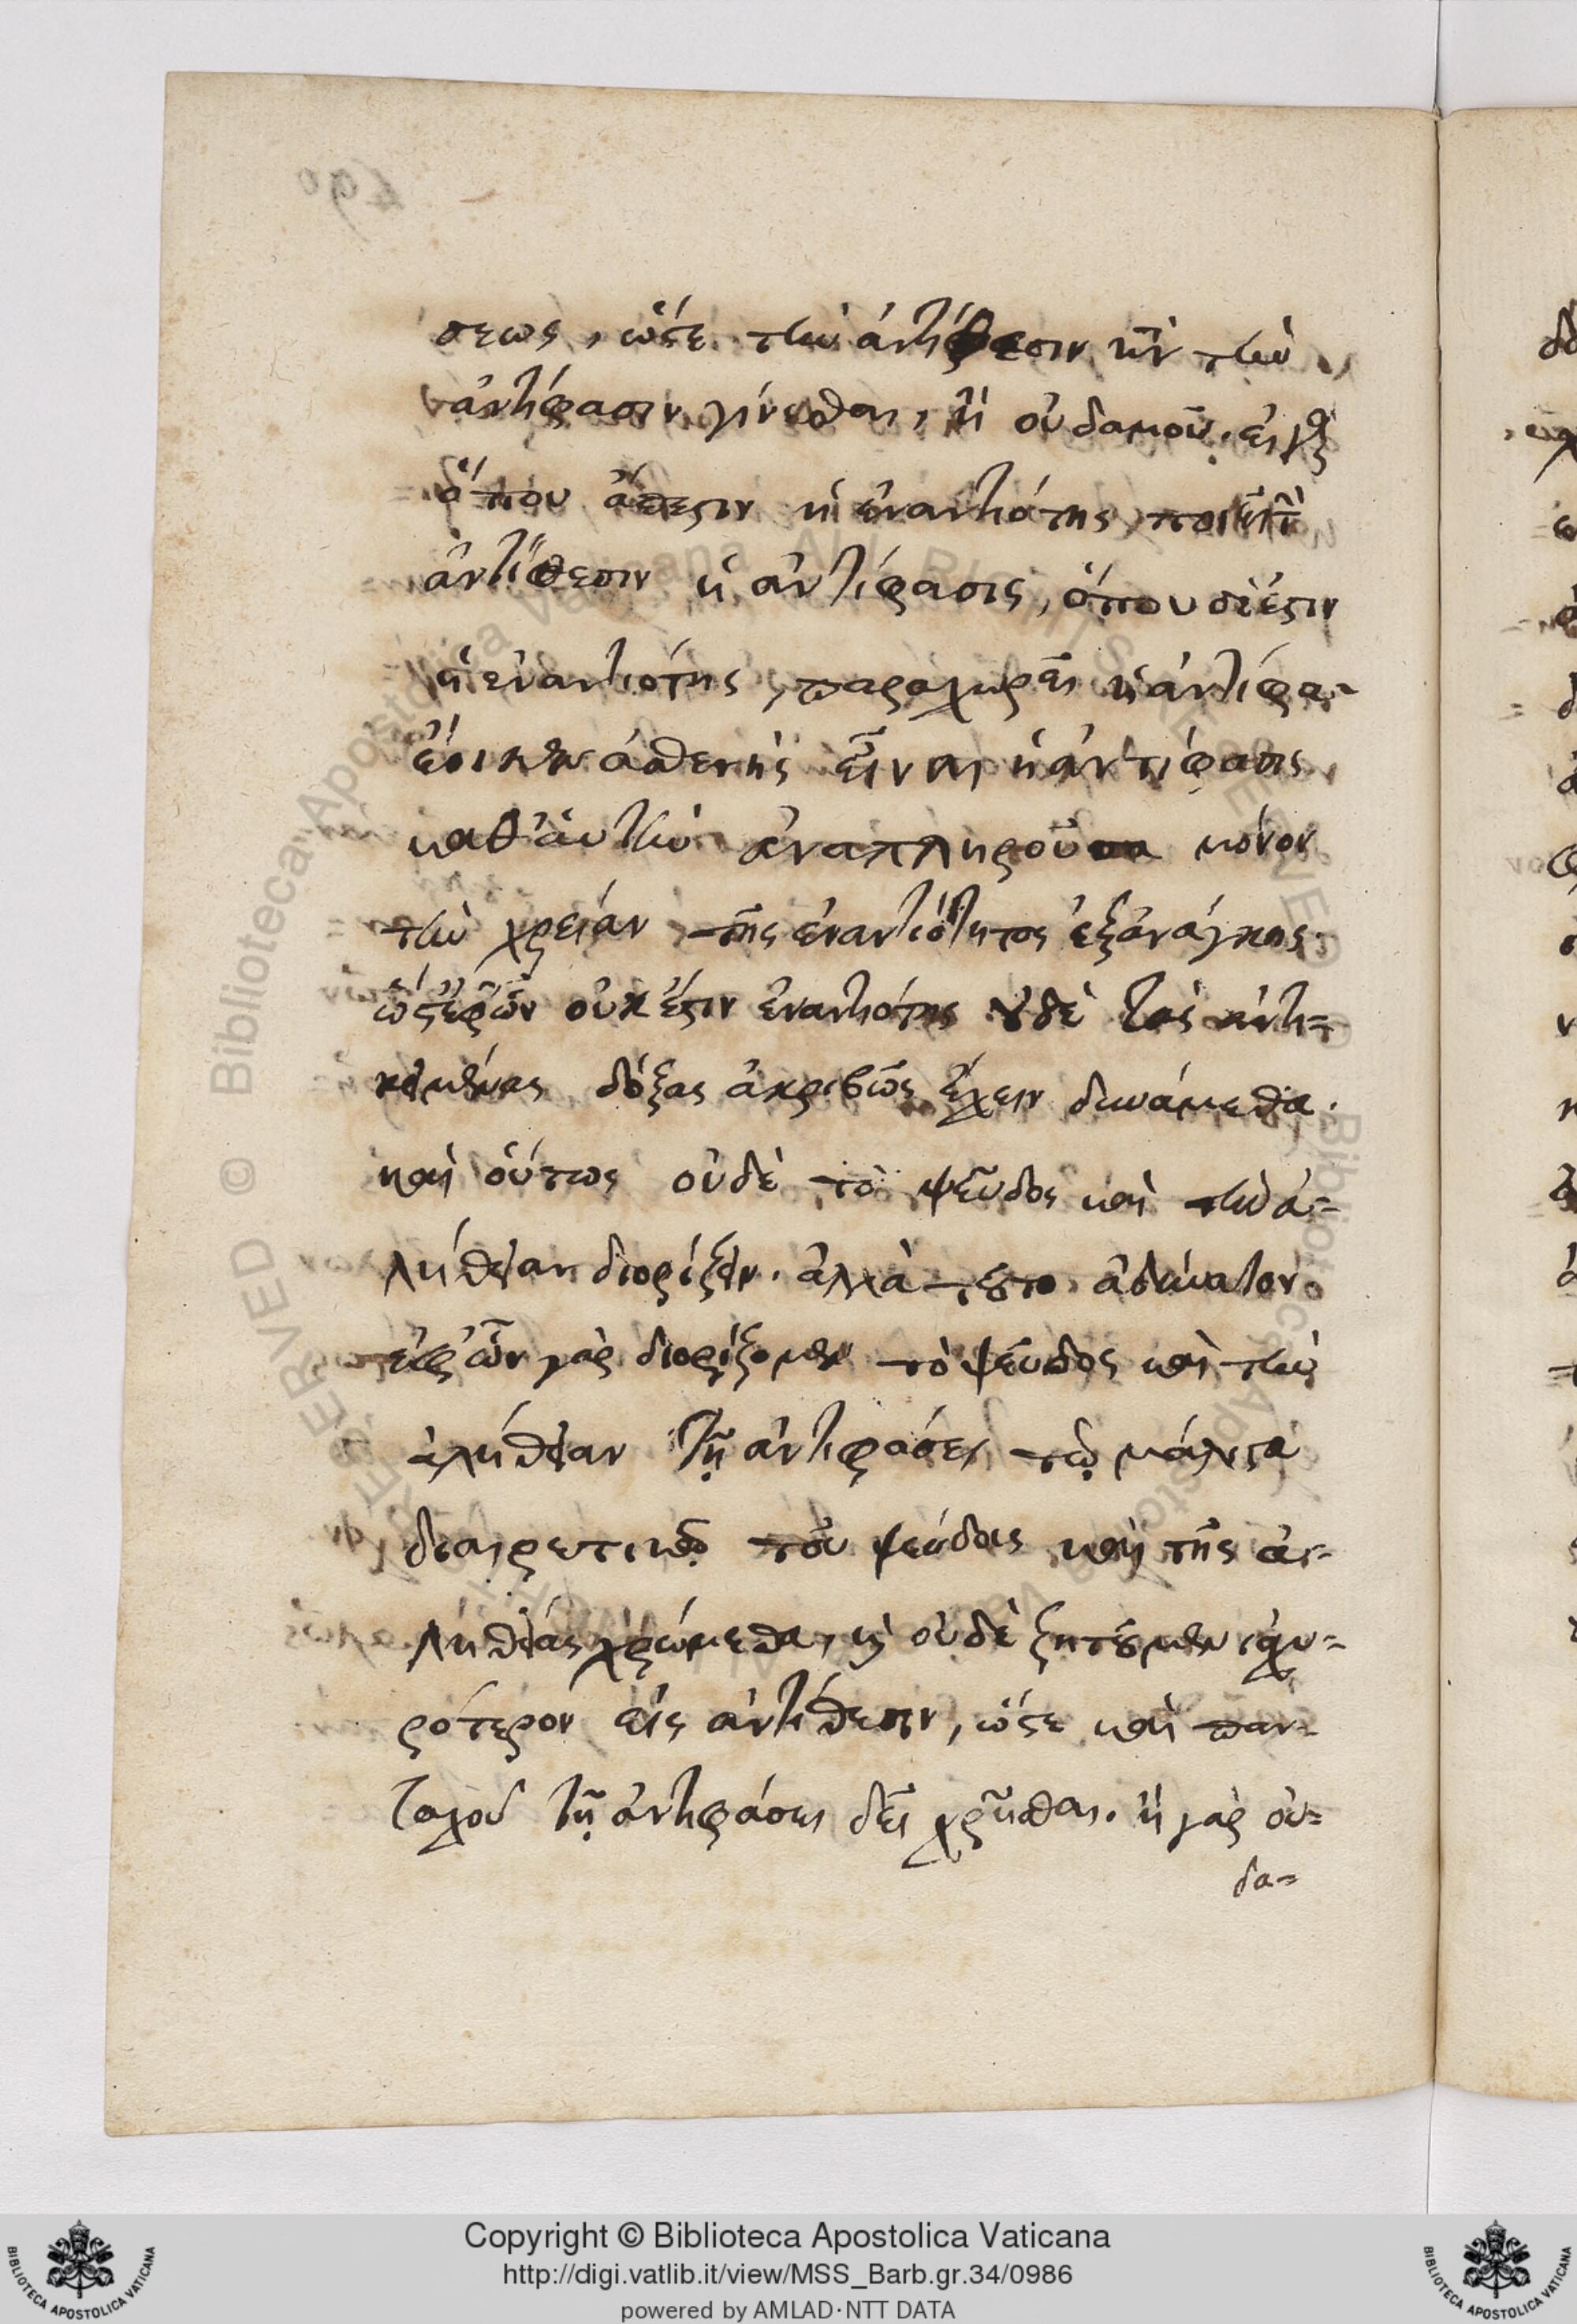 σεως, ὥστε τὴν ἀντίθεσιν κατὰ τὴν
ἀντίφασιν γίνεσθαι, ἢ οὐδαμοῦ. εἰ γὰρ
ὅπου ἄπεστιν ἡ ἐναντιότης ποιεῖ τὴν
ἀντίθεσιν ἡ ἀντίφασις, ὅπου δὲ ἔστιν
ἡ ἐναντιότης, παραχωρεῖ ἡ ἀντίφα-
ἔοικεν ἀσθενὴς εἶναι ἡ ἀντίφασις
καθ' αὑτὴν ἀναπληροῦσα μόνον
τὴν χρείαν τῆς ἐναντιότητος ἐξ ἀνάγκης.
ὥστ' ἐφ' ὧν οὐκ ἔστιν ἐναντιότης οὐδὲ τὰς ἀντι-
κειμένας δόξας ἀκριβῶς ἔχειν δυνάμεθα.
καὶ οὕτως οὐδὲ τὸ ψεῦδος καὶ τὴν ἀ-
λήθειαν διορίζειν. ἀλλὰ τοῦτο ἀδύνατον.
ἐφ' ὧν γὰρ διορίζομεν τὸ ψεῦδος καὶ τὴν
ἀλήθειαν τῇ ἀντιφάσει τῷ μάλιστα
διαιρετικῷ τοῦ ψεύδους καὶ τῆς ἀ-
ληθείας χρώμεθα, καὶ οὐδὲ ζητοῦμεν ἰσχυ-
ρότερον εἰς ἀντίθεσιν, ὥστε καὶ παν-
ταχοῦ τῇ ἀντιφάσει δεῖ χρῆσθαι. ἢ γὰρ οὐ-
δα-
Copyright © Biblioteca Apostolica Vaticana
http://digi.vatlib.it/view/MSS_Barb.gr.34/0986
powered by AMLAD·NTT DATA
BIBLIOTECA APOSTOLICA VATICANA
BIBLIOTECA APOSTOLICA VATICANA